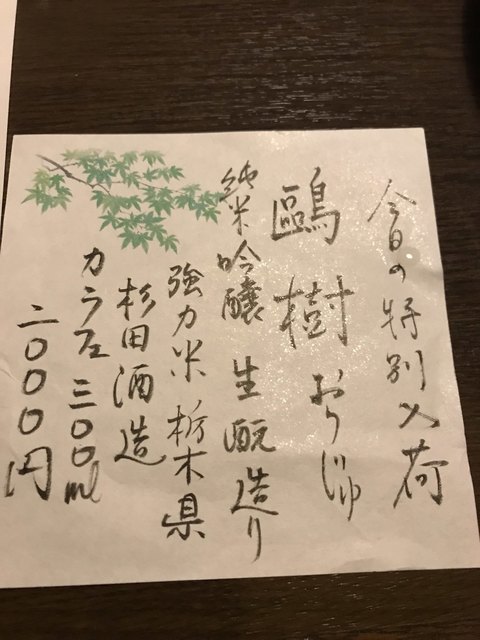 今日の特別入荷
鷗樹 おうじゅ
純米吟醸 生酛造り
強力米 栃木県
杉田酒造
カラフェ 三〇〇ml
二〇〇〇円